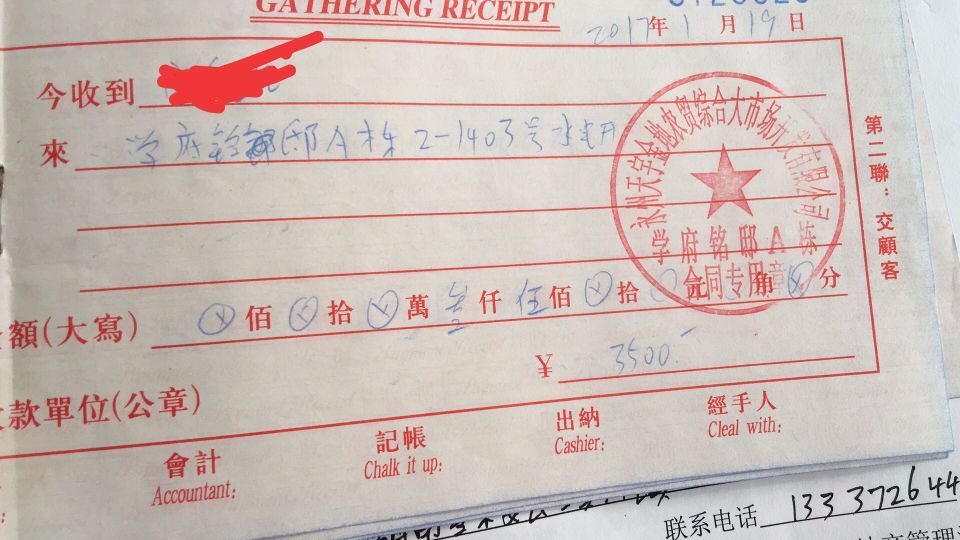 GATHERING RECEIPT
2017年1月19日
今收到
來 学府铭邸A栋2-1403号水电开
永州天宇金地农贸综合大市场开发有限公司
学府铭邸A栋
合同专用章
額(大寫) ⊗佰⊗拾⊗萬叁仟伍佰⊗拾 元 角⊗分
¥ 3500.-
款單位(公章)
會計 記帳 出納 經手人
Accountant: Chalk it up: Cashier: Cleal with:
第二聯：交顧客
联系电话 133372644